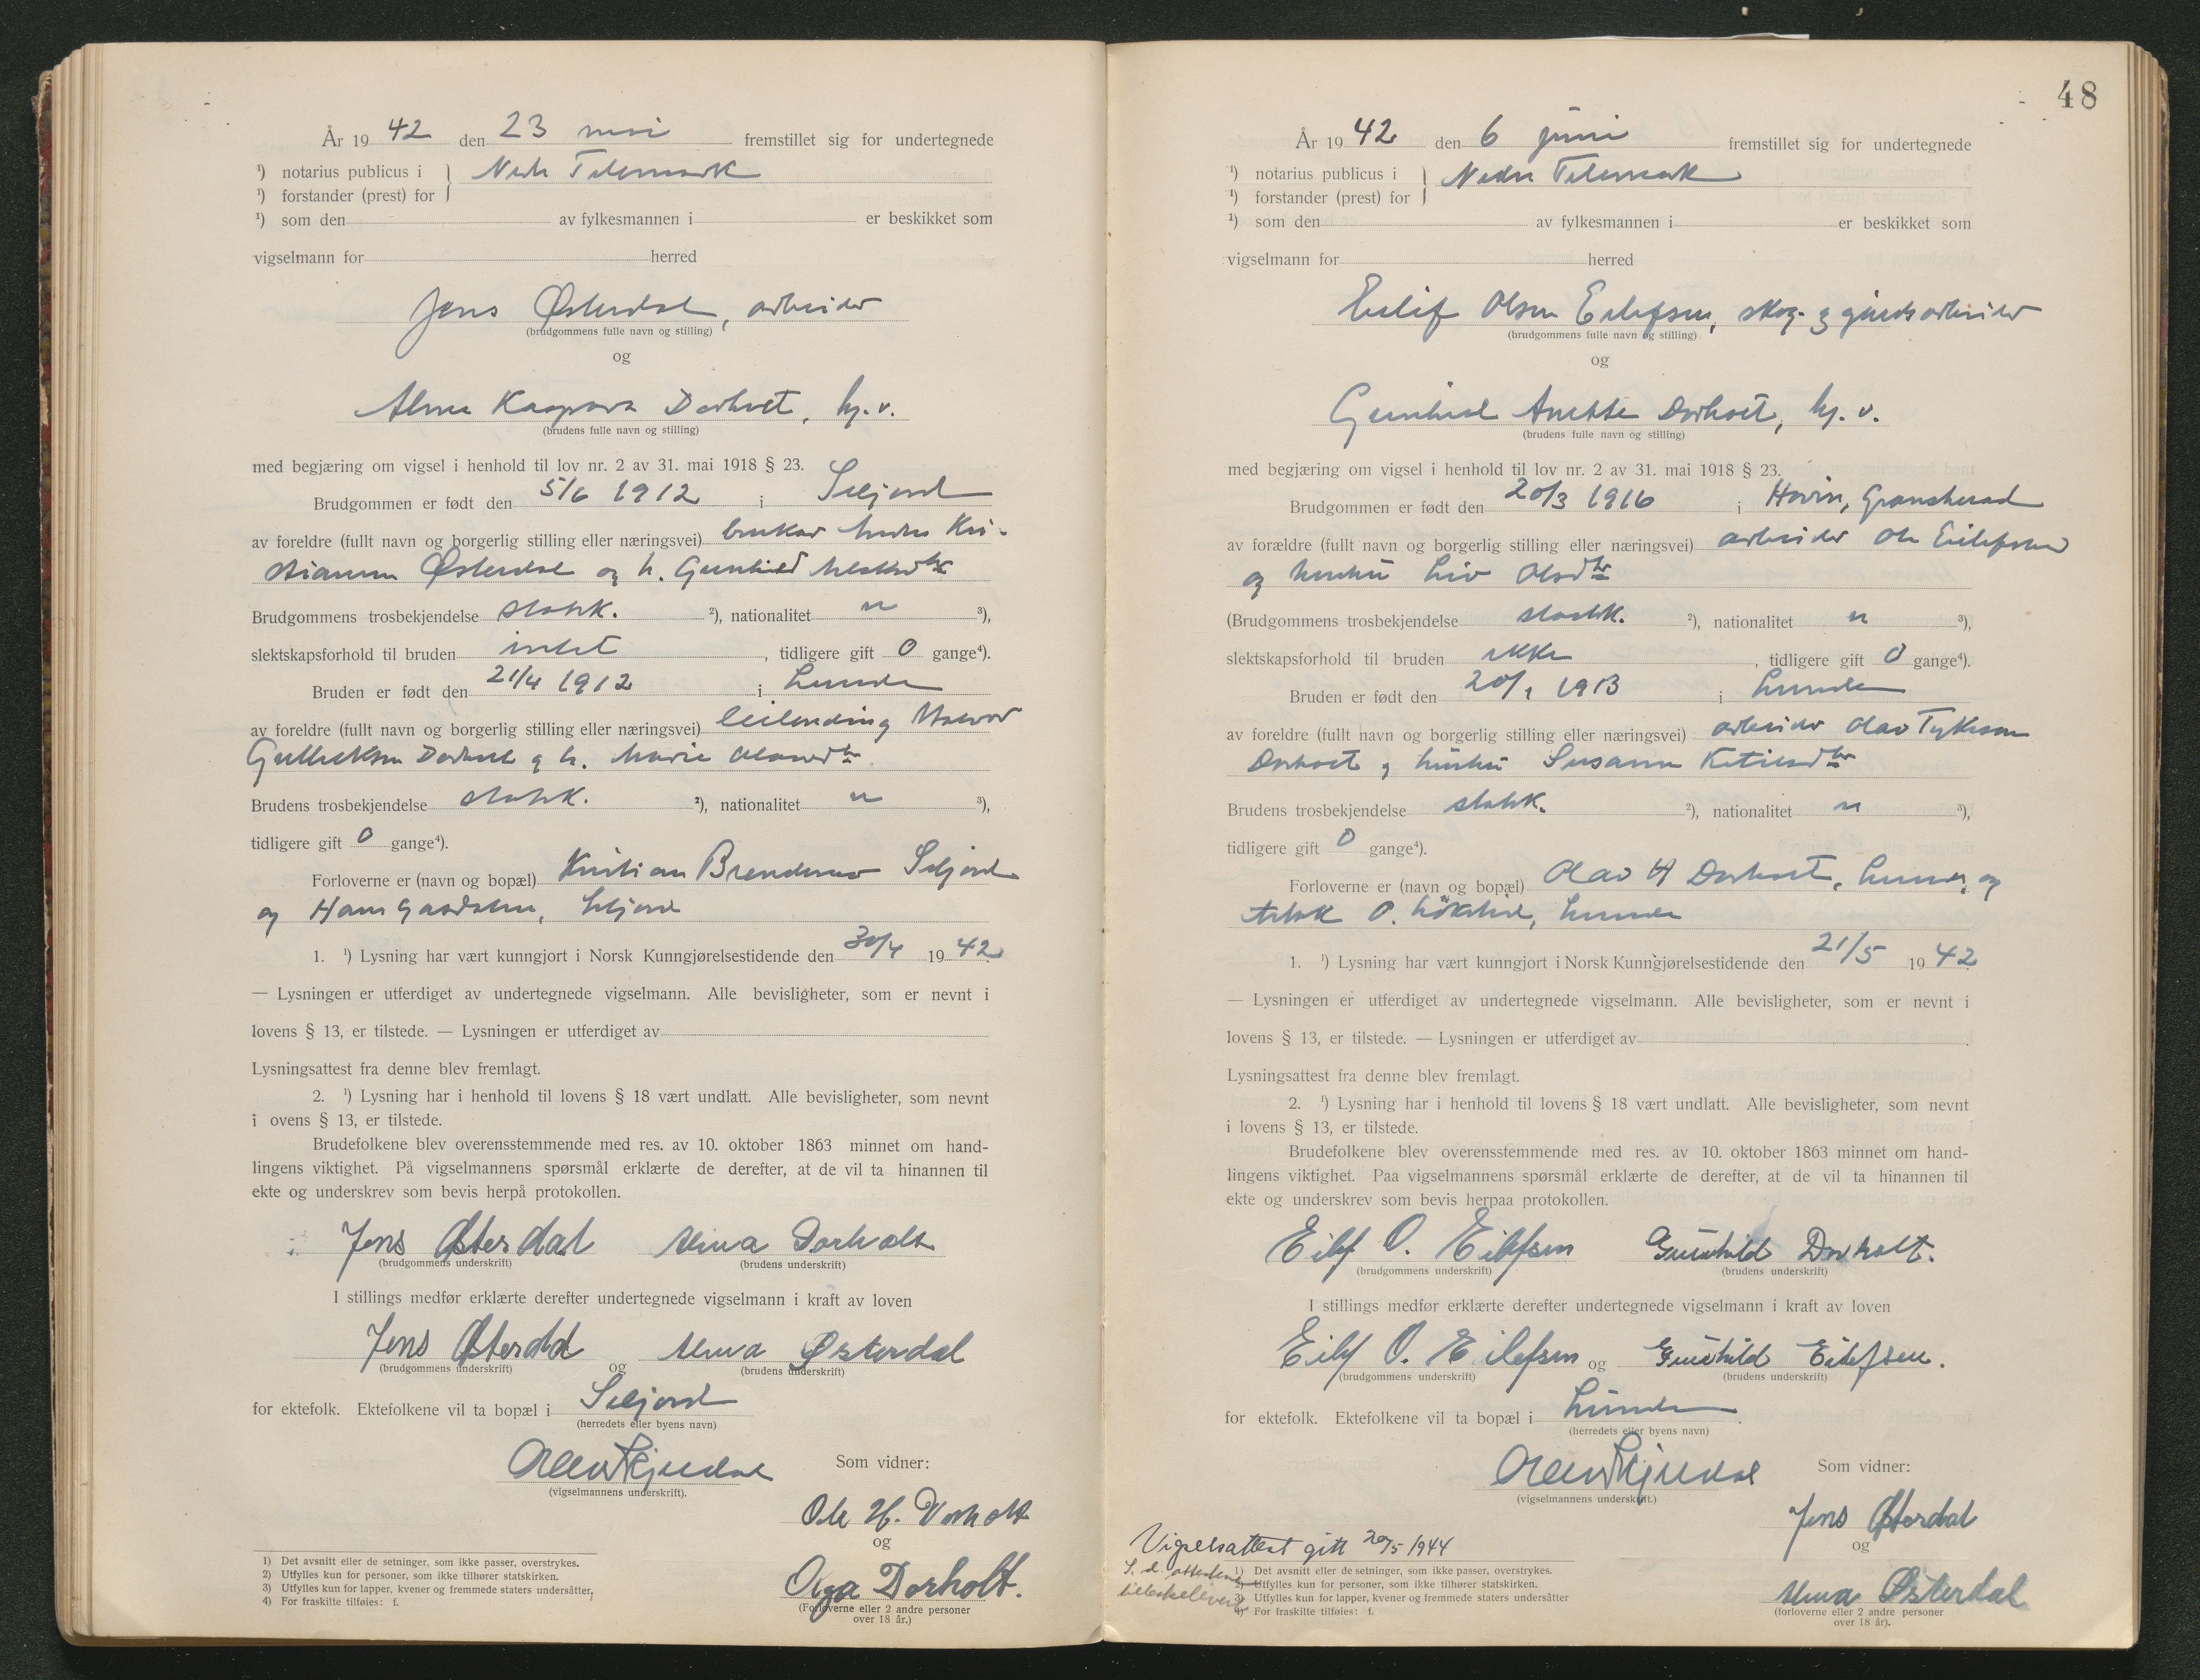 År 19 42 den 23 mai fremstillet sig for undertegnede
¹) notarius publicus i } Nedre Telemark
¹) forstander (prest) for
¹) som den av fylkesmannen i er beskikket som
vigselmann for herred
Jens Østerdal, arbeider
(brudgommens fulle navn og stilling)
og
Alma Kaspara Dorholt, hj. v.
(brudens fulle navn og stilling)
med begjæring om vigsel i henhold til lov nr. 2 av 31. mai 1918 § 23.
Brudgommen er født den 5/6 1912 i Seljord
av foreldre (fullt navn og borgerlig stilling eller næringsvei) bruker Kri-
stiansen Østerdal og h. Gunhild
Brudgommens trosbekjendelse statsk. ²), nationalitet n ³),
slektskapsforhold til bruden intet, tidligere gift 0 gange⁴).
Bruden er født den 21/4 1912 i Lunde
av foreldre (fullt navn og borgerlig stilling eller næringsvei) leilending Halvor
Gulleksen Dorholt og h. Marie
Brudens trosbekjendelse statsk. ²), nationalitet n ³),
tidligere gift 0 gange⁴).
Forloverne er (navn og bopæl) Kristian Seljord
og Hans Seljord
1. ¹) Lysning har vært kunngjort i Norsk Kunngjørelsestidende den 30/4 19 42
— Lysningen er utferdiget av undertegnede vigselmann. Alle bevisligheter, som er nevnt i
lovens § 13, er tilstede. — Lysningen er utferdiget av
Lysningsattest fra denne blev fremlagt.
2. ¹) Lysning har i henhold til lovens § 18 vært undlatt. Alle bevisligheter, som nevnt
i ovens § 13, er tilstede.
Brudefolkene blev overensstemmende med res. av 10. oktober 1863 minnet om hand-
lingens viktighet. På vigselmannens spørsmål erklærte de derefter, at de vil ta hinannen til
ekte og underskrev som bevis herpå protokollen.
Jens Østerdal Alma Dorholt
(brudgommens underskrift) (brudens underskrift)
I stillings medfør erklærte derefter undertegnede vigselmann i kraft av loven
Jens Østerdal og Alma Østerdal
(brudgommens underskrift) (brudens underskrift)
for ektefolk. Ektefolkene vil ta bopæl i Seljord
(herredets eller byens navn)
Som vidner:
(vigselmannens underskrift).
Ole H. Dorholt
og
Olga Dorholt.
(Forloverne eller 2 andre personer
over 18 år.)
1) Det avsnitt eller de setninger, som ikke passer, overstrykes.
2) Utfylles kun for personer, som ikke tilhører statskirken.
3) Utfylles kun for lapper, kvener og fremmede staters undersåtter,
4) For fraskilte tilføies: f.
48
År 19 42 den 6 juni fremstillet sig for undertegnede
¹) notarius publicus i } Nedre Telemark
¹) forstander (prest) for
¹) som den av fylkesmannen i er beskikket som
vigselmann for herred
Eilif Olsen Eilefsen, skog- og gårdsarbeider
(brudgommens fulle navn og stilling)
og
Gunhild Anette Dorholt, hj. v.
(brudens fulle navn og stilling)
med begjæring om vigsel i henhold til lov nr. 2 av 31. mai 1918 § 23.
Brudgommen er født den 20/3 1916 i Hovin, Gransherad
av forældre (fullt navn og borgerlig stilling eller næringsvei) arbeider Ole Eilefsen
og hustru Liv Olsdtr
(Brudgommens trosbekjendelse statsk. ²), nationalitet n ³),
slektskapsforhold til bruden ikke, tidligere gift 0 gange⁴).
Bruden er født den 20/1 1913 i Lunde
av foreldre (fullt navn og borgerlig stilling eller næringsvei) arbeider Olav Tykesen
Dorholt og hustru Susanne Ketilsdtr
Brudens trosbekjendelse statsk. ²), nationalitet n ³),
tidligere gift 0 gange⁴).
Forloverne er (navn og bopæl) Olav H Dorholt, Lunde, og
O. Lunde
1. ¹) Lysning har vært kunngjort i Norsk Kunngjørelsestidende den 21/5 19 42
— Lysningen er utferdiget av undertegnede vigselmann. Alle bevisligheter, som er nevnt i
lovens § 13, er tilstede. — Lysningen er utferdiget av
Lysningsattest fra denne blev fremlagt.
2. ¹) Lysning har i henhold til lovens § 18 vært undlatt. Alle bevisligheter, som nevnt
i lovens § 13, er tilstede.
Brudefolkene blev overensstemmende med res. av 10. oktober 1863 minnet om hand-
lingens viktighet. Paa vigselmannens spørsmål erklærte de derefter, at de vil ta hinannen til
ekte og underskrev som bevis herpaa protokollen.
Eilef O. Eilefsen Gunhild Dorholt.
(brudgommens underskrift) (brudens underskrift)
I stillings medfør erklærte derefter undertegnede vigselmann i kraft av loven
Eilef O. Eilefsen og Gunhild Eilefsen.
(brudgommens underskrift) (brudens underskrift)
for ektefolk. Ektefolkene vil ta bopæl i Lunde
(herredets eller byens navn)
Som vidner:
(vigselmannens underskrift.)
Jens Østerdal
og
Alma Østerdal
(forloverne eller 2 andre personer
over 18 år).
Vigselsattest gitt 20/5 1944
S. d. attestene
tilbakelevert
1) Det avsnitt eller de setninger, som ikke passer, overstrykes.
2) Utfylles kun for personer, som ikke tilhører statskirken.
3) Utfylles kun for lapper, kvener og fremmede staters undersåtter
4) For fraskilte tilføies: f.